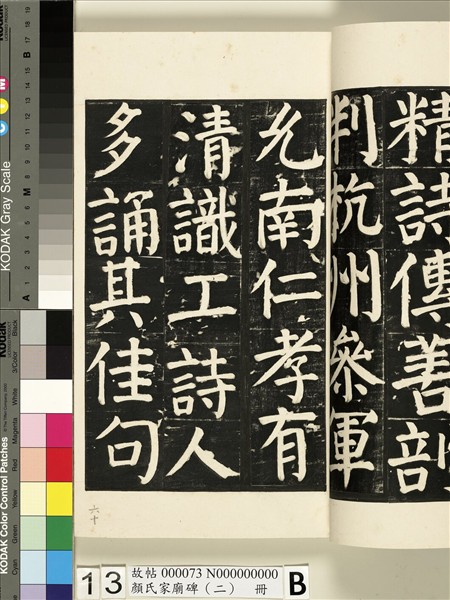 精詩傳善剖
判杭州叅軍
允南仁孝有
清識工詩人
多誦其佳句
六十
13
故帖 000073 N000000000
顏氏家廟碑（二） 冊
B
Kodak
C Y M
KODAK Gray Scale
A 1 2 3 4 5 6 M 8 9 10 11 12 13 14 15 B 17 18 19
Kodak
KODAK Color Control Patches
Cyan Green Yellow Red Magenta White 3/Color Black